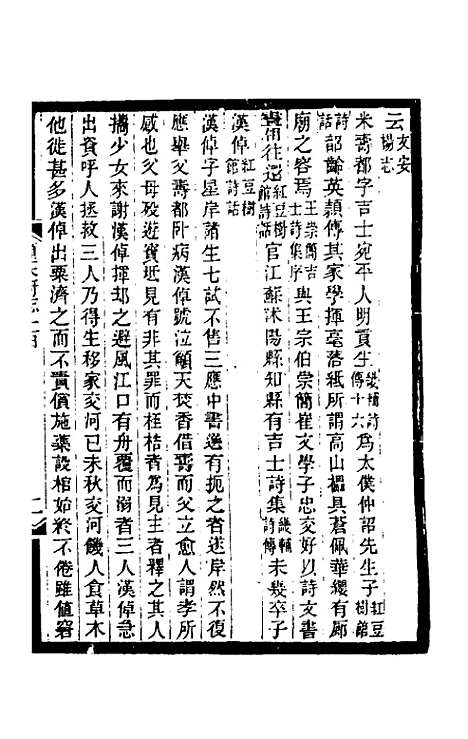 云文安楊志
米壽都字吉士宛平人明貢生畿輔詩傳十六為太僕仲詔先生子紅豆樹館
詩話韶齡英穎傳其家學揮毫落紙所謂高山襯具蒼佩華纓有廊
廟之容焉王崇簡吉士詩集序與王宗伯崇簡崔文學子忠交好以詩文書
畫相往還紅豆樹館詩話官江蘇沭陽縣知縣有吉士詩集畿輔詩傳未幾卒子
漢倬紅豆樹館詩話
漢倬字星岸諸生七試不售三應中書選有扼之者遂岸然不復
應舉父壽都臥病漢倬號泣籲天焚香借喪而父立愈人謂孝所
感也父母歿遊賓坻見有非其罪而桎梏者為見主者釋之其人
攜少女來謝漢倬揮却之避風江口有舟覆而溺者三人漢倬急
出資呼人拯救三人乃得生移家交河己未秋交河饑人食草木
他徙甚多漢倬出粟濟之而不責償施藥設棺始終不倦雖值窘